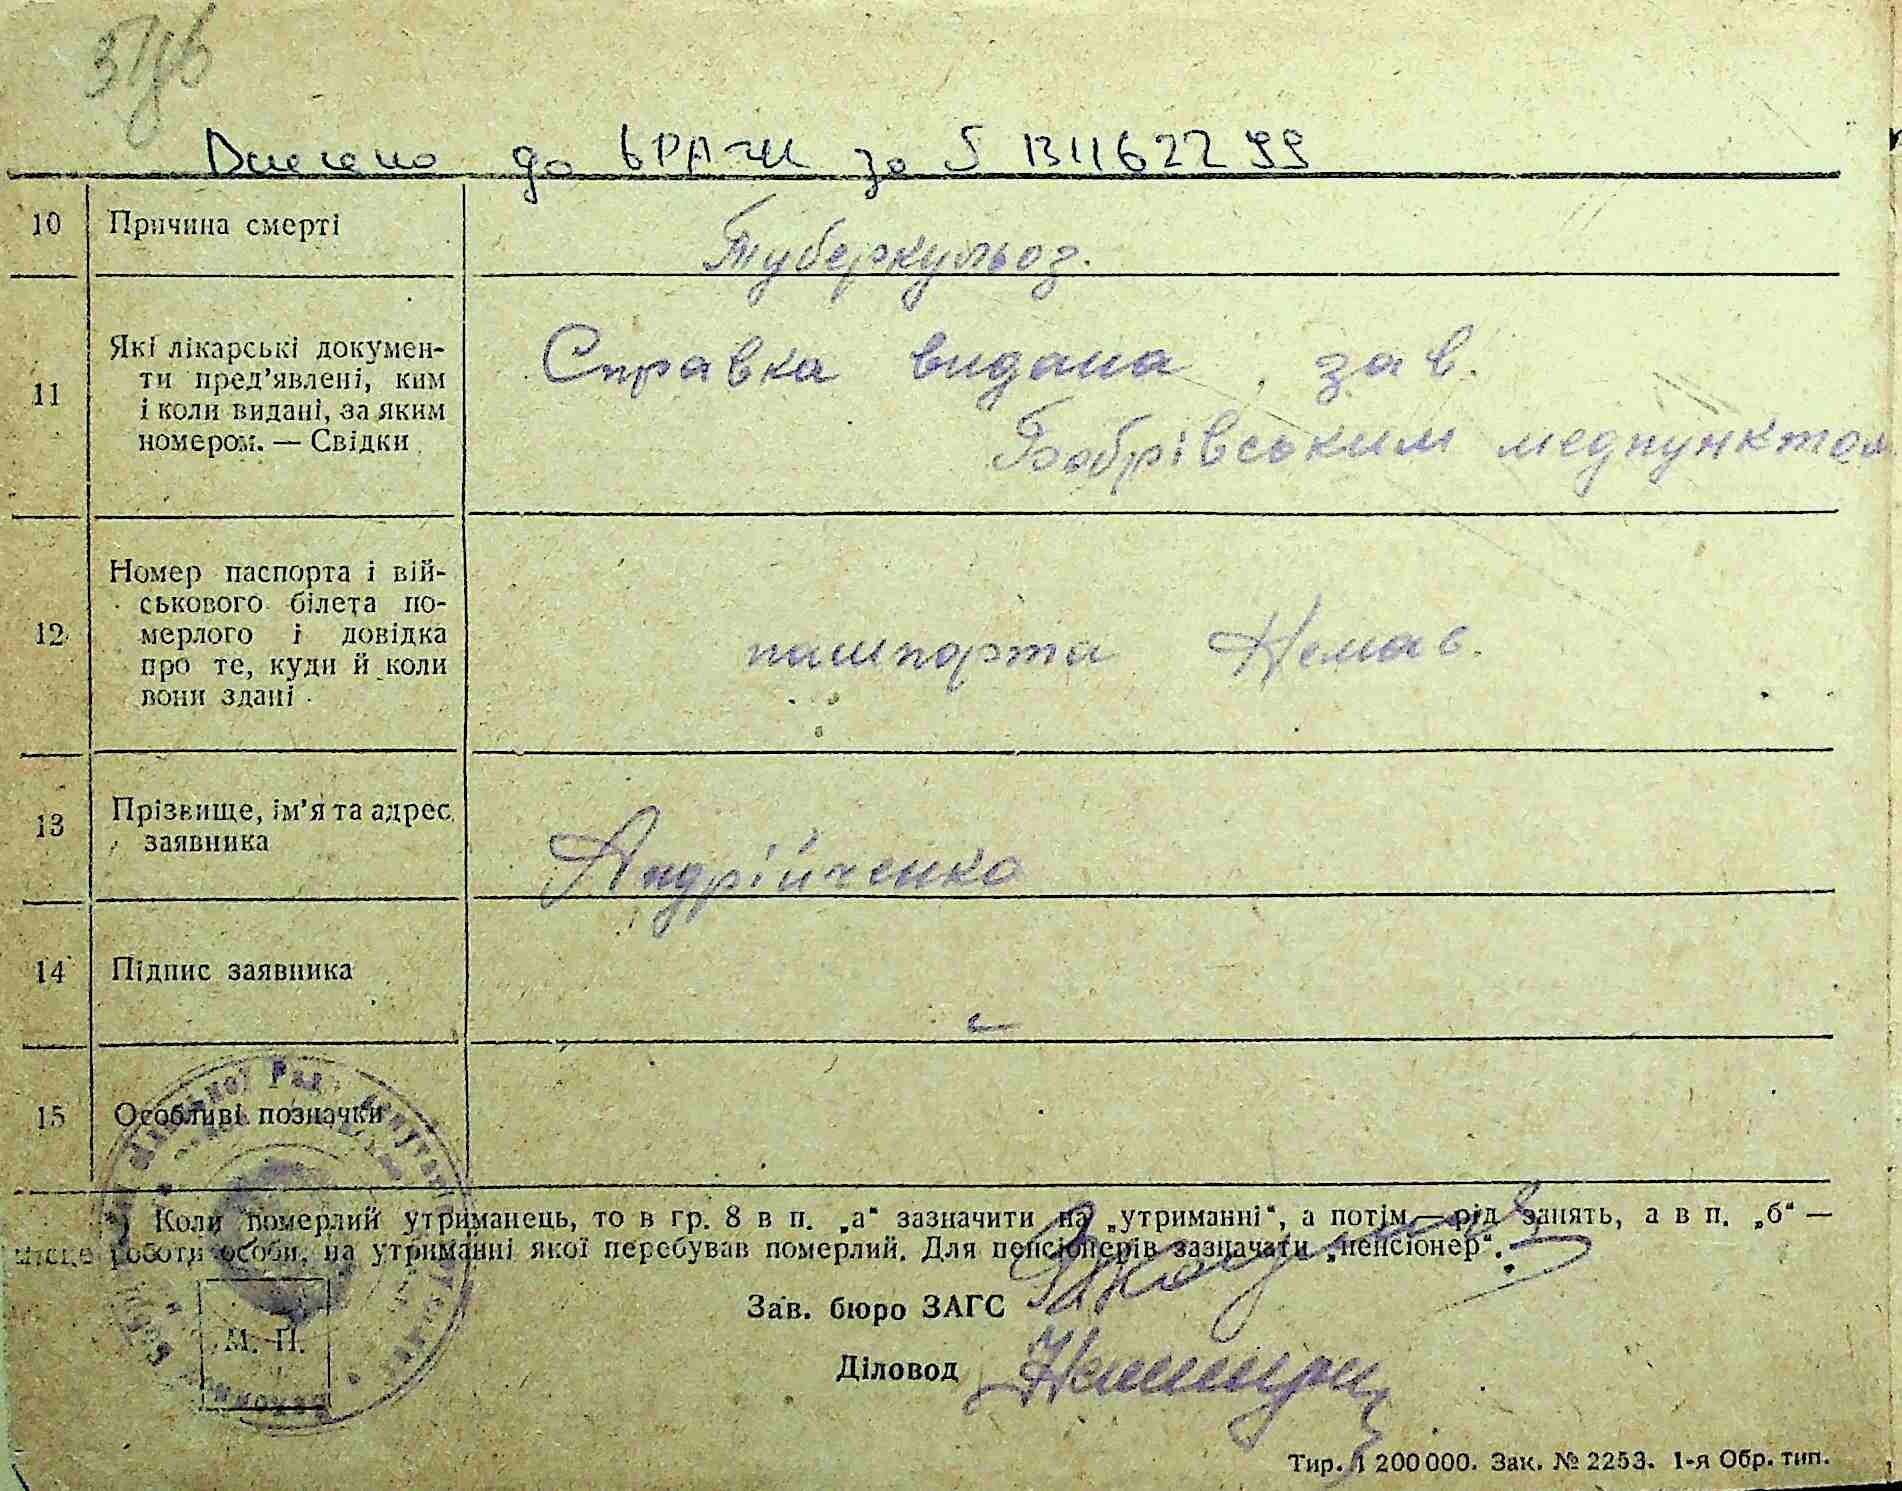 Внесено до ДРАЦС за № 1311622799
10 Причина смерті Туберкульоз.
11 Які лікарські докумен-
ти пред'явлені, ким
і коли видані, за яким
номером. — Свідки
Справка видана зав.
Бобрівським медпунктом
12 Номер паспорта і вій-
ськового білета по-
мерлого і довідка
про те, куди й коли
вони здані
пашпорта Немає.
13 Прізвище, ім'я та адрес
заявника
Андрійченко
14 Підпис заявника
15 Особливі позначки
*) Коли померлий утриманець, то в гр. 8 в п. „а“ зазначити на „утриманні“, а потім — рід занять, а в п. „б“ —
місце роботи особи, на утриманні якої перебував померлий. Для пенсіонерів зазначати „пенсіонер“.
Зав. бюро ЗАГС
М. П.
Діловод
Тир. 1 200 000. Зак. № 2253. 1-я Обр. тип.